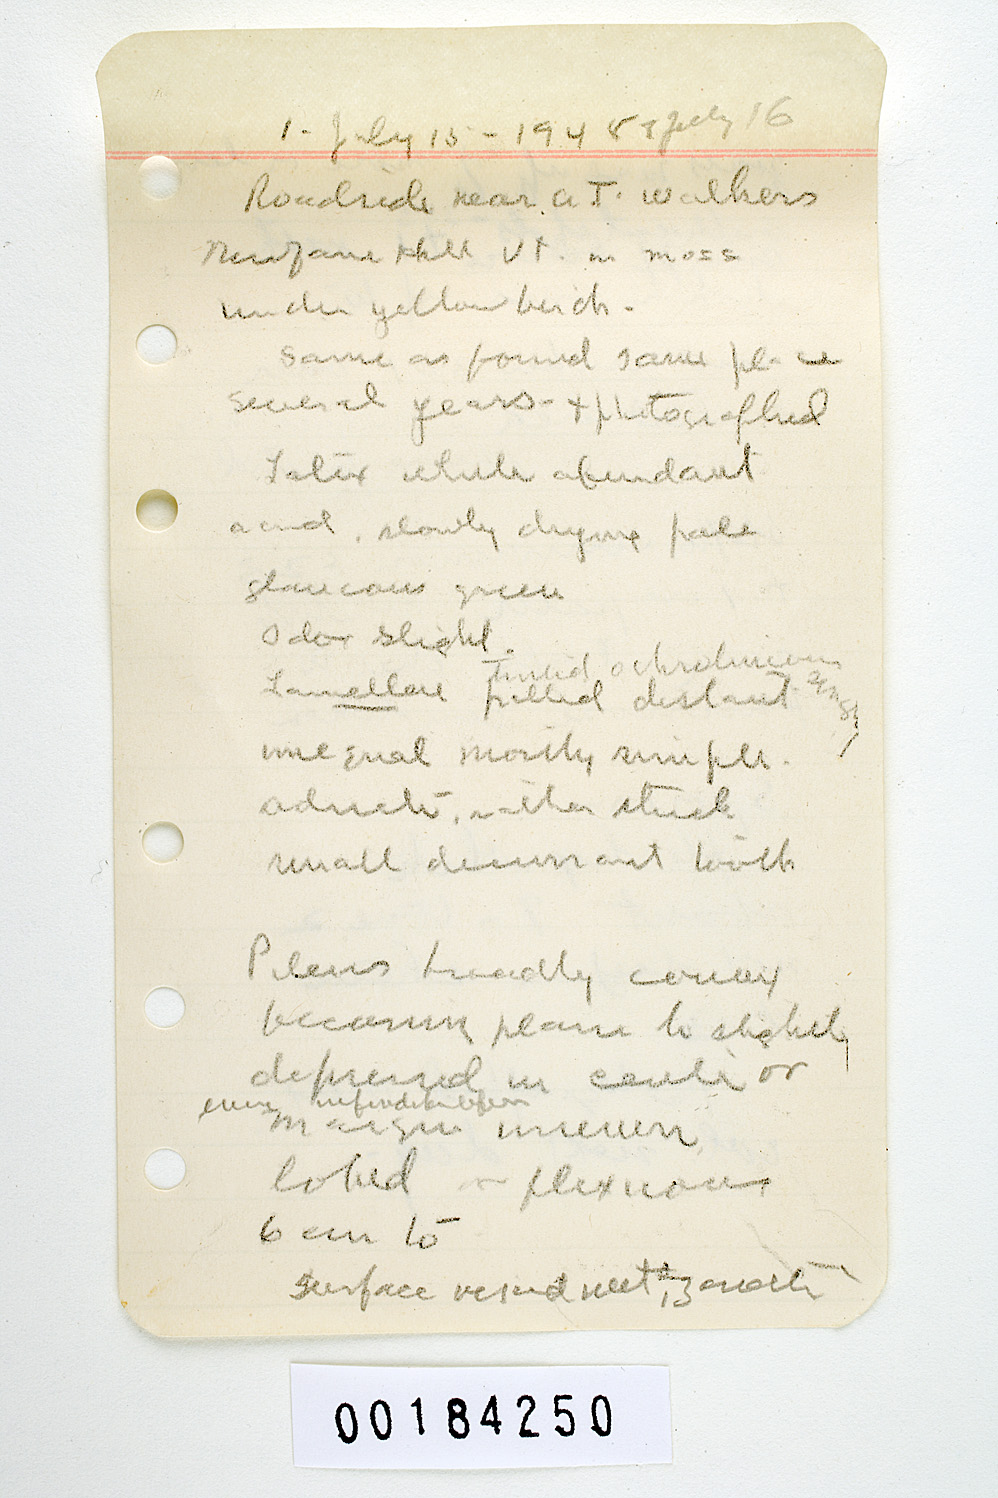 1- July 15 - 1948 & July 16
Roadside near A T. Walkers
Newfane Hill Vt. in moss
under yellow birch.
Same as found same place
several years - & photographed
Latex white abundant
acrid, slowly drying pale
glaucous green
Odor slight.
Tinted ochroleucous
Lamellae pallid distant
unequal mostly simple.
adnate, rather thick
small decurrent tooth
Pileus broadly convex
becoming plane to slightly
depressed in center or
even infundibuliform
Margin uneven,
lobed or flexuous
6 cm to
Surface viscid wet,
00184250